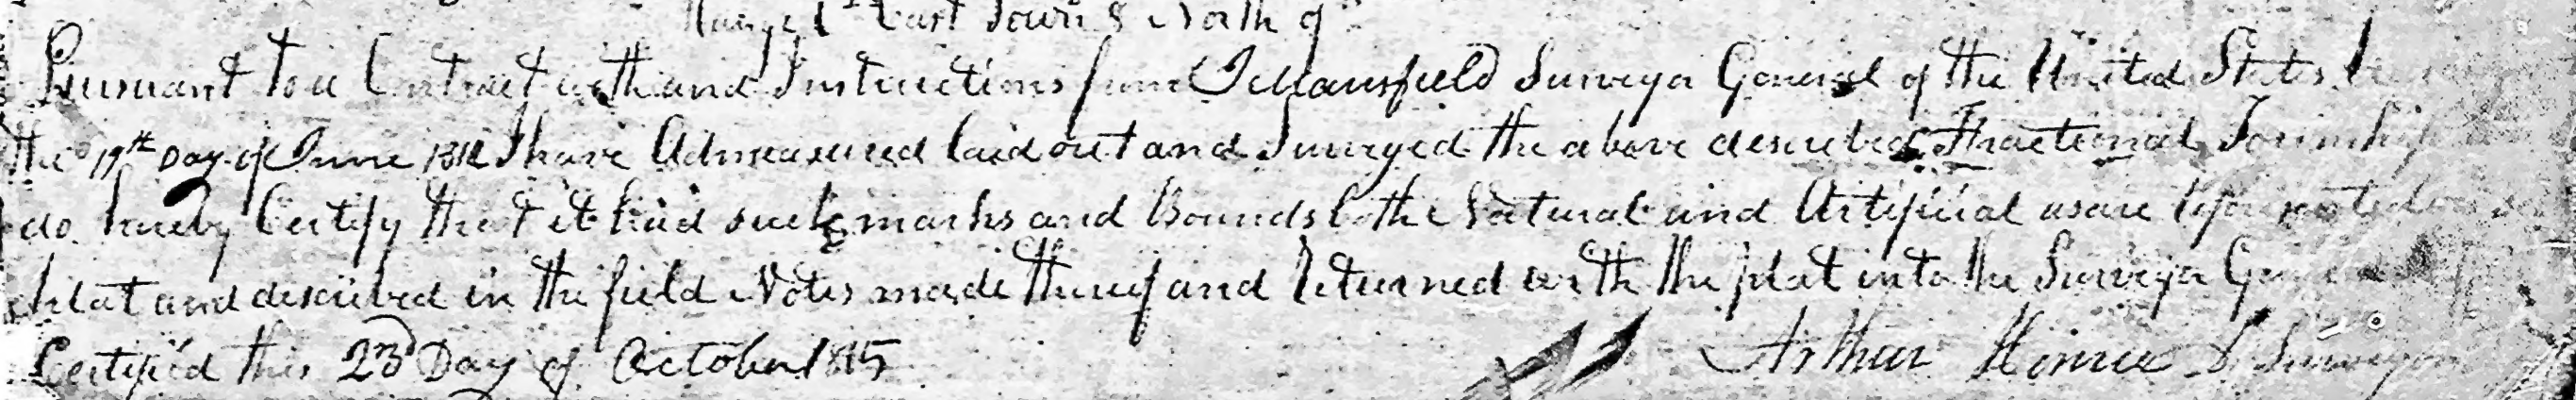 Range 1st East Town 8 North of
Pursuant to a Contract with and Instructions from J Mansfield Surveyor General of the United States
the 19th Day of June 1812 I have Admeasured laid out and Surveyed the above described Fractional Township
do hereby Certify that it had such marks and Bounds both Natural and Artificial as are represented on
plat and described in the field Notes made thereof and Returned with the plat into the Surveyor
Certified this 23d Day of October 1815 Arthur Henrie D Surveyor